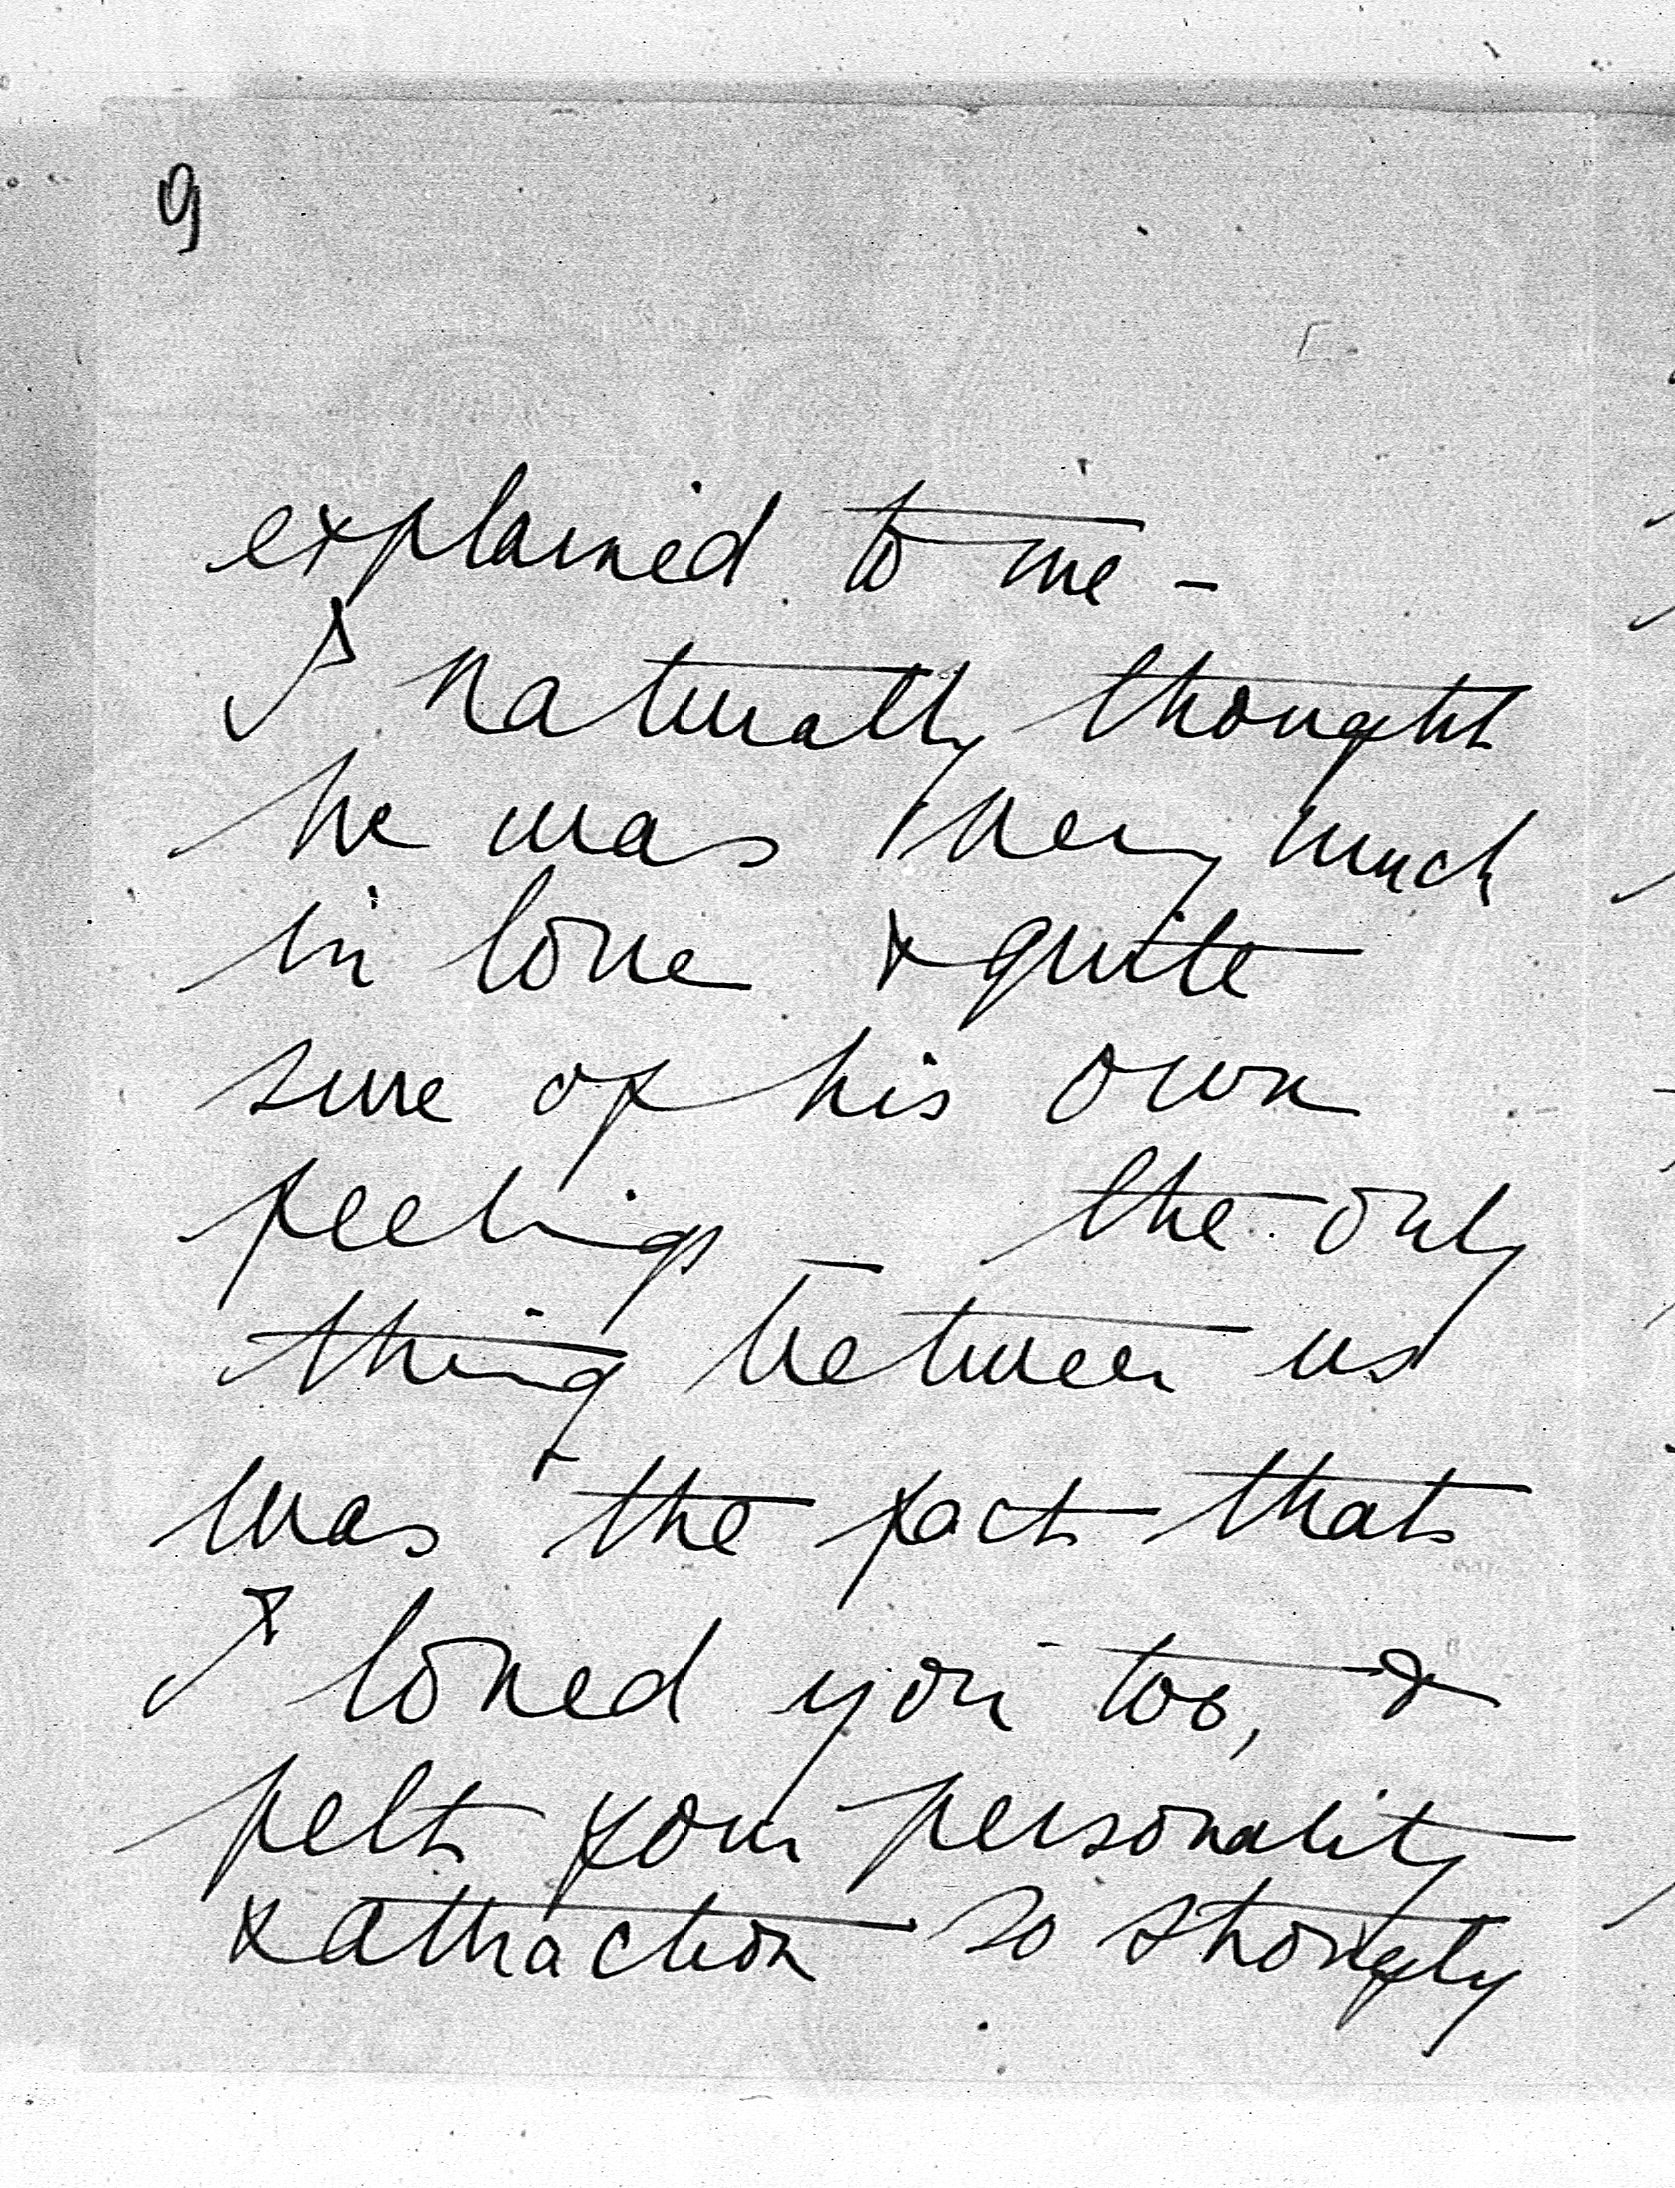 9
explained to me -
I naturally thought
he was very much
in love & quite
sure of his own
feelings - the only
thing between us
was the fact that
I loved you too, &
felt your personality
& attraction so strongly